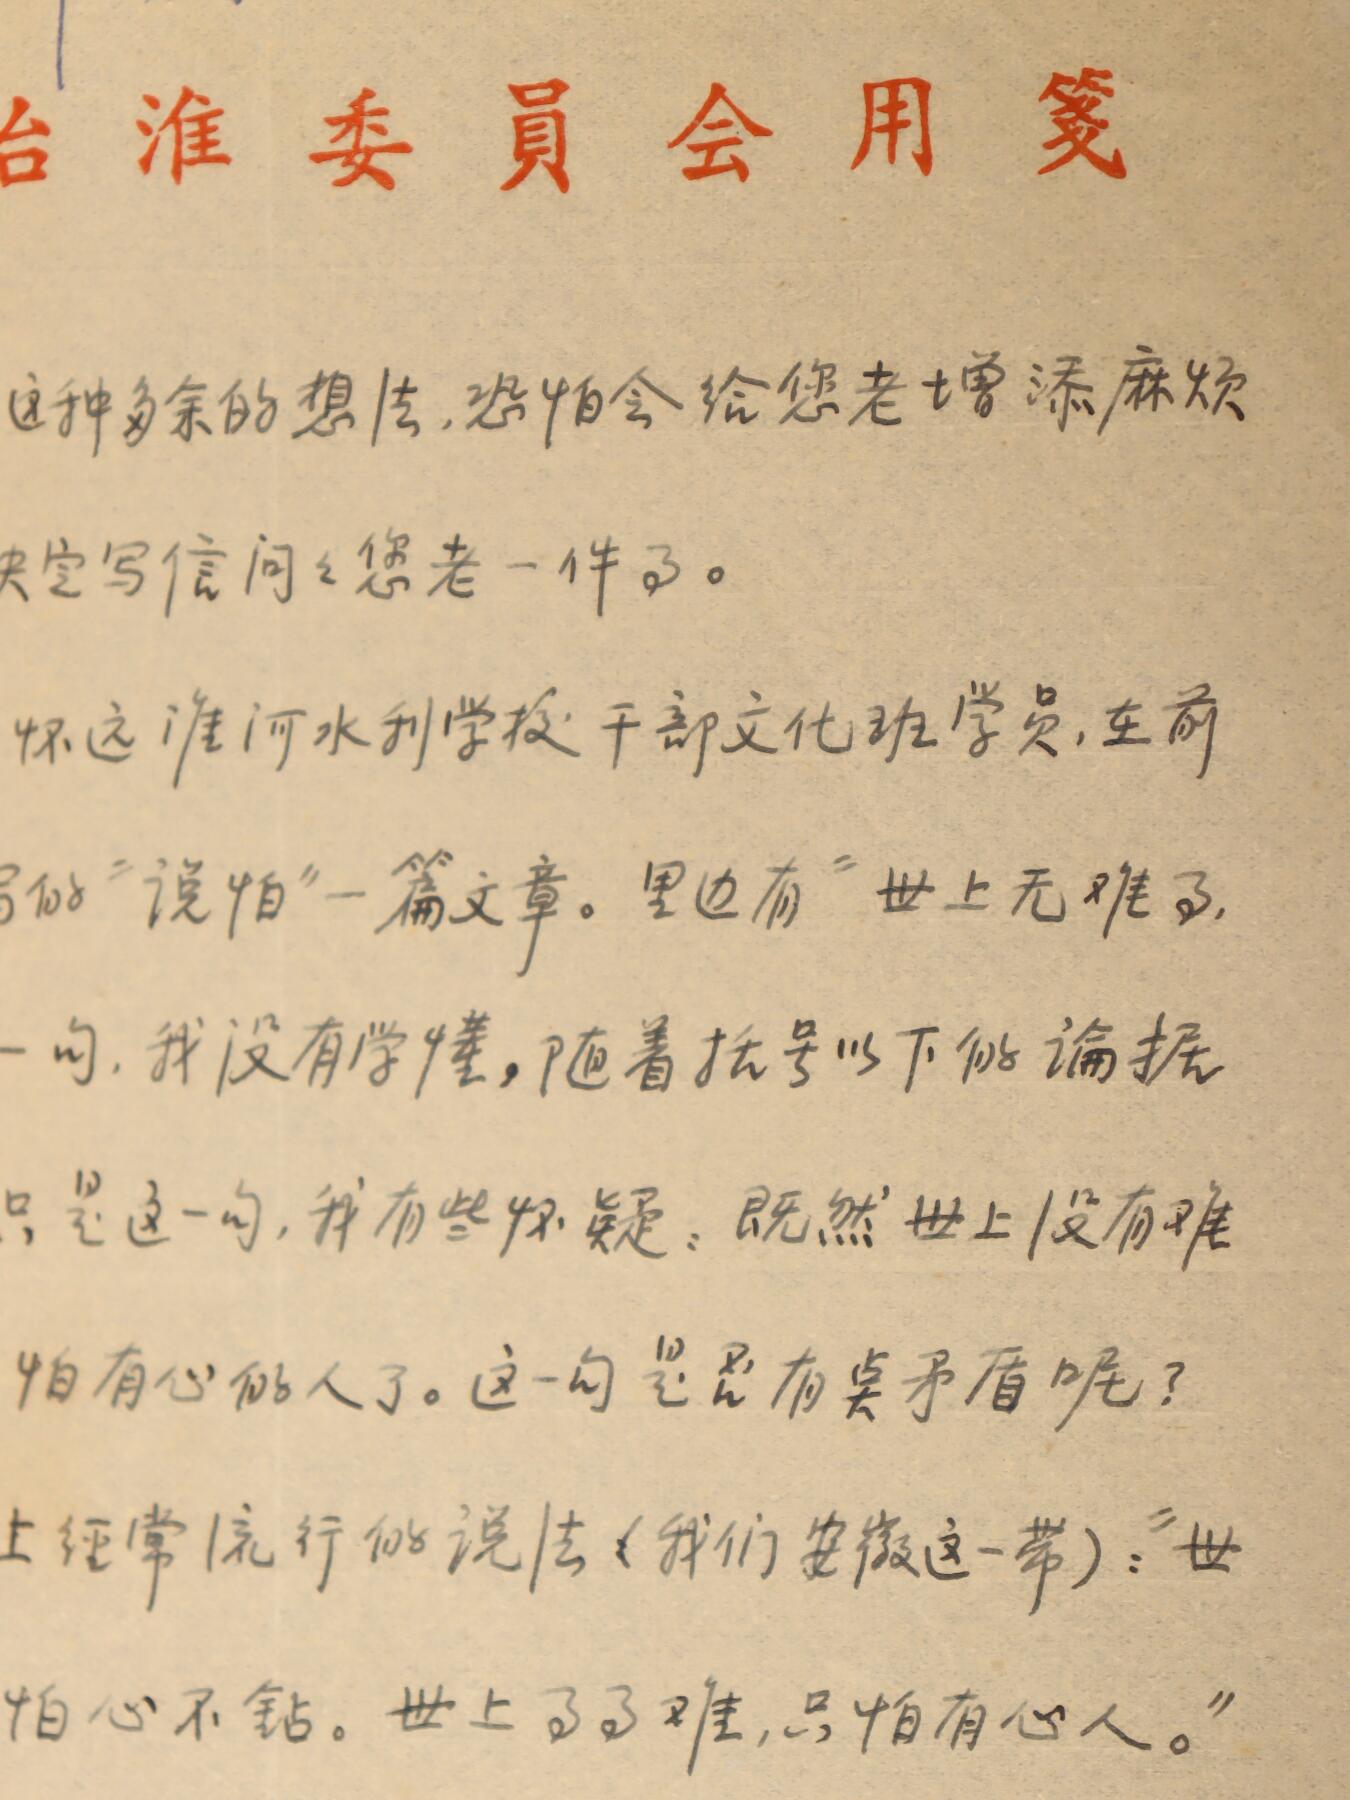 治淮委員会用箋
这种多余的想法,恐怕会给您老增添麻烦
决定写信问々您老一件事。
怀远淮河水利学校干部文化班学员,在前
写的“说怕”一篇文章。里边有“世上无难事,
一句,我没有学懂,随着括号以下的論据
只是这一句,我有些怀疑:既然世上没有难
怕有心的人了。这一句是否有奌矛盾呢?
上经常流行的说法(我们安徽这一带):“世
怕心不钻。世上事事难,只怕有心人。”